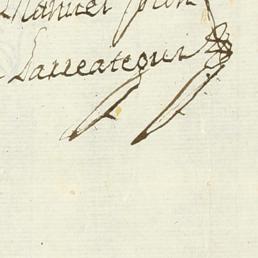 Manuel Jph
Larreategui